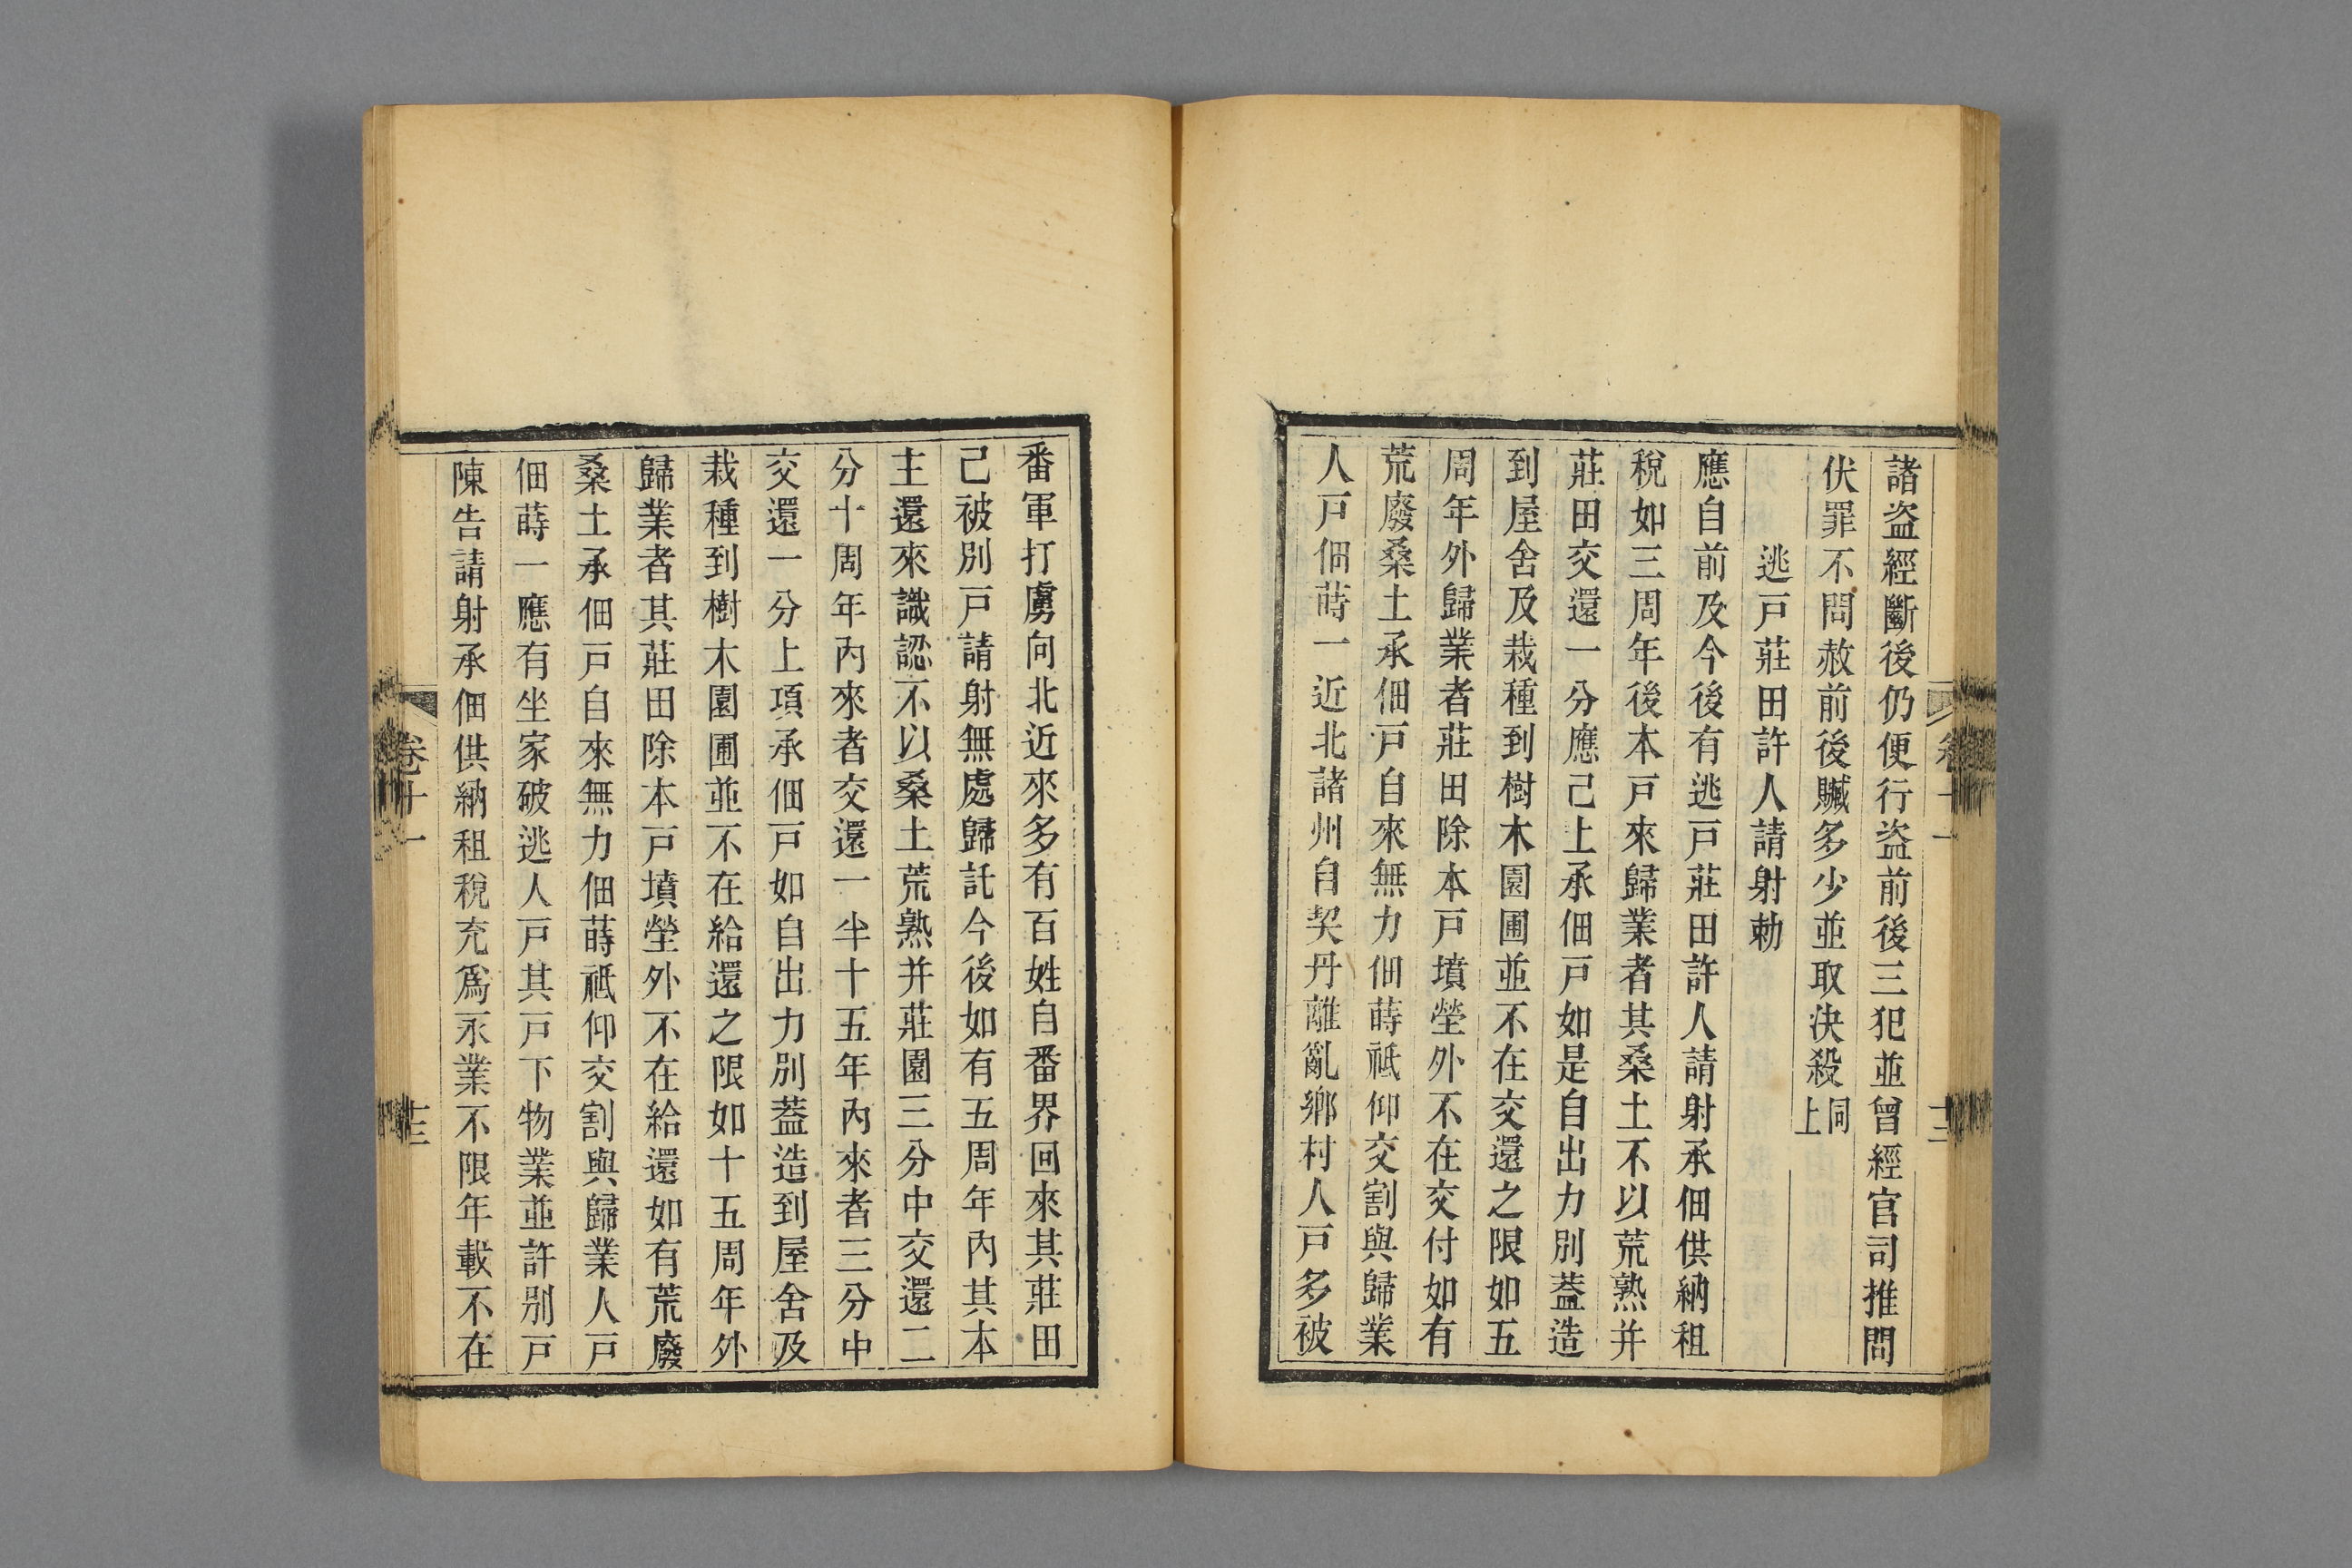 諸盜經斷後仍便行盜前後三犯並曾經官司推問
伏罪不問赦前後贓多少並取決殺同上
逃戸莊田許人請射勅
應自前及今後有逃戸莊田許人請射承佃供納租
稅如三周年後本戸來歸業者其桑土不以荒熟并
莊田交還一分應己上承佃戸如是自出力別蓋造
到屋舍及栽種到樹木園圃並不在交還之限如五
周年外歸業者莊田除本戸墳塋外不在交付如有
荒廢桑土承佃戸自來無力佃蒔祗仰交割與歸業
人戸佃蒔一近北諸州自契丹離亂鄉村人戸多被
番軍打虜向北近來多有百姓自番界回來其莊田
己被別戸請射無處歸託今後如有五周年內其本
主還來識認不以桑土荒熟并莊園三分中交還二
分十周年內來者交還一半十五年內來者三分中
交還一分上項承佃戸如自出力別蓋造到屋舍及
栽種到樹木園圃並不在給還之限如十五周年外
歸業者其莊田除本戸墳塋外不在給還如有荒廢
桑土承佃戸自來無力佃蒔祗仰交割與歸業人戸
佃蒔一應有坐家破逃人戸其戸下物業並許別戸
陳告請射承佃供納租稅充爲永業不限年載不在
卷十一
十三